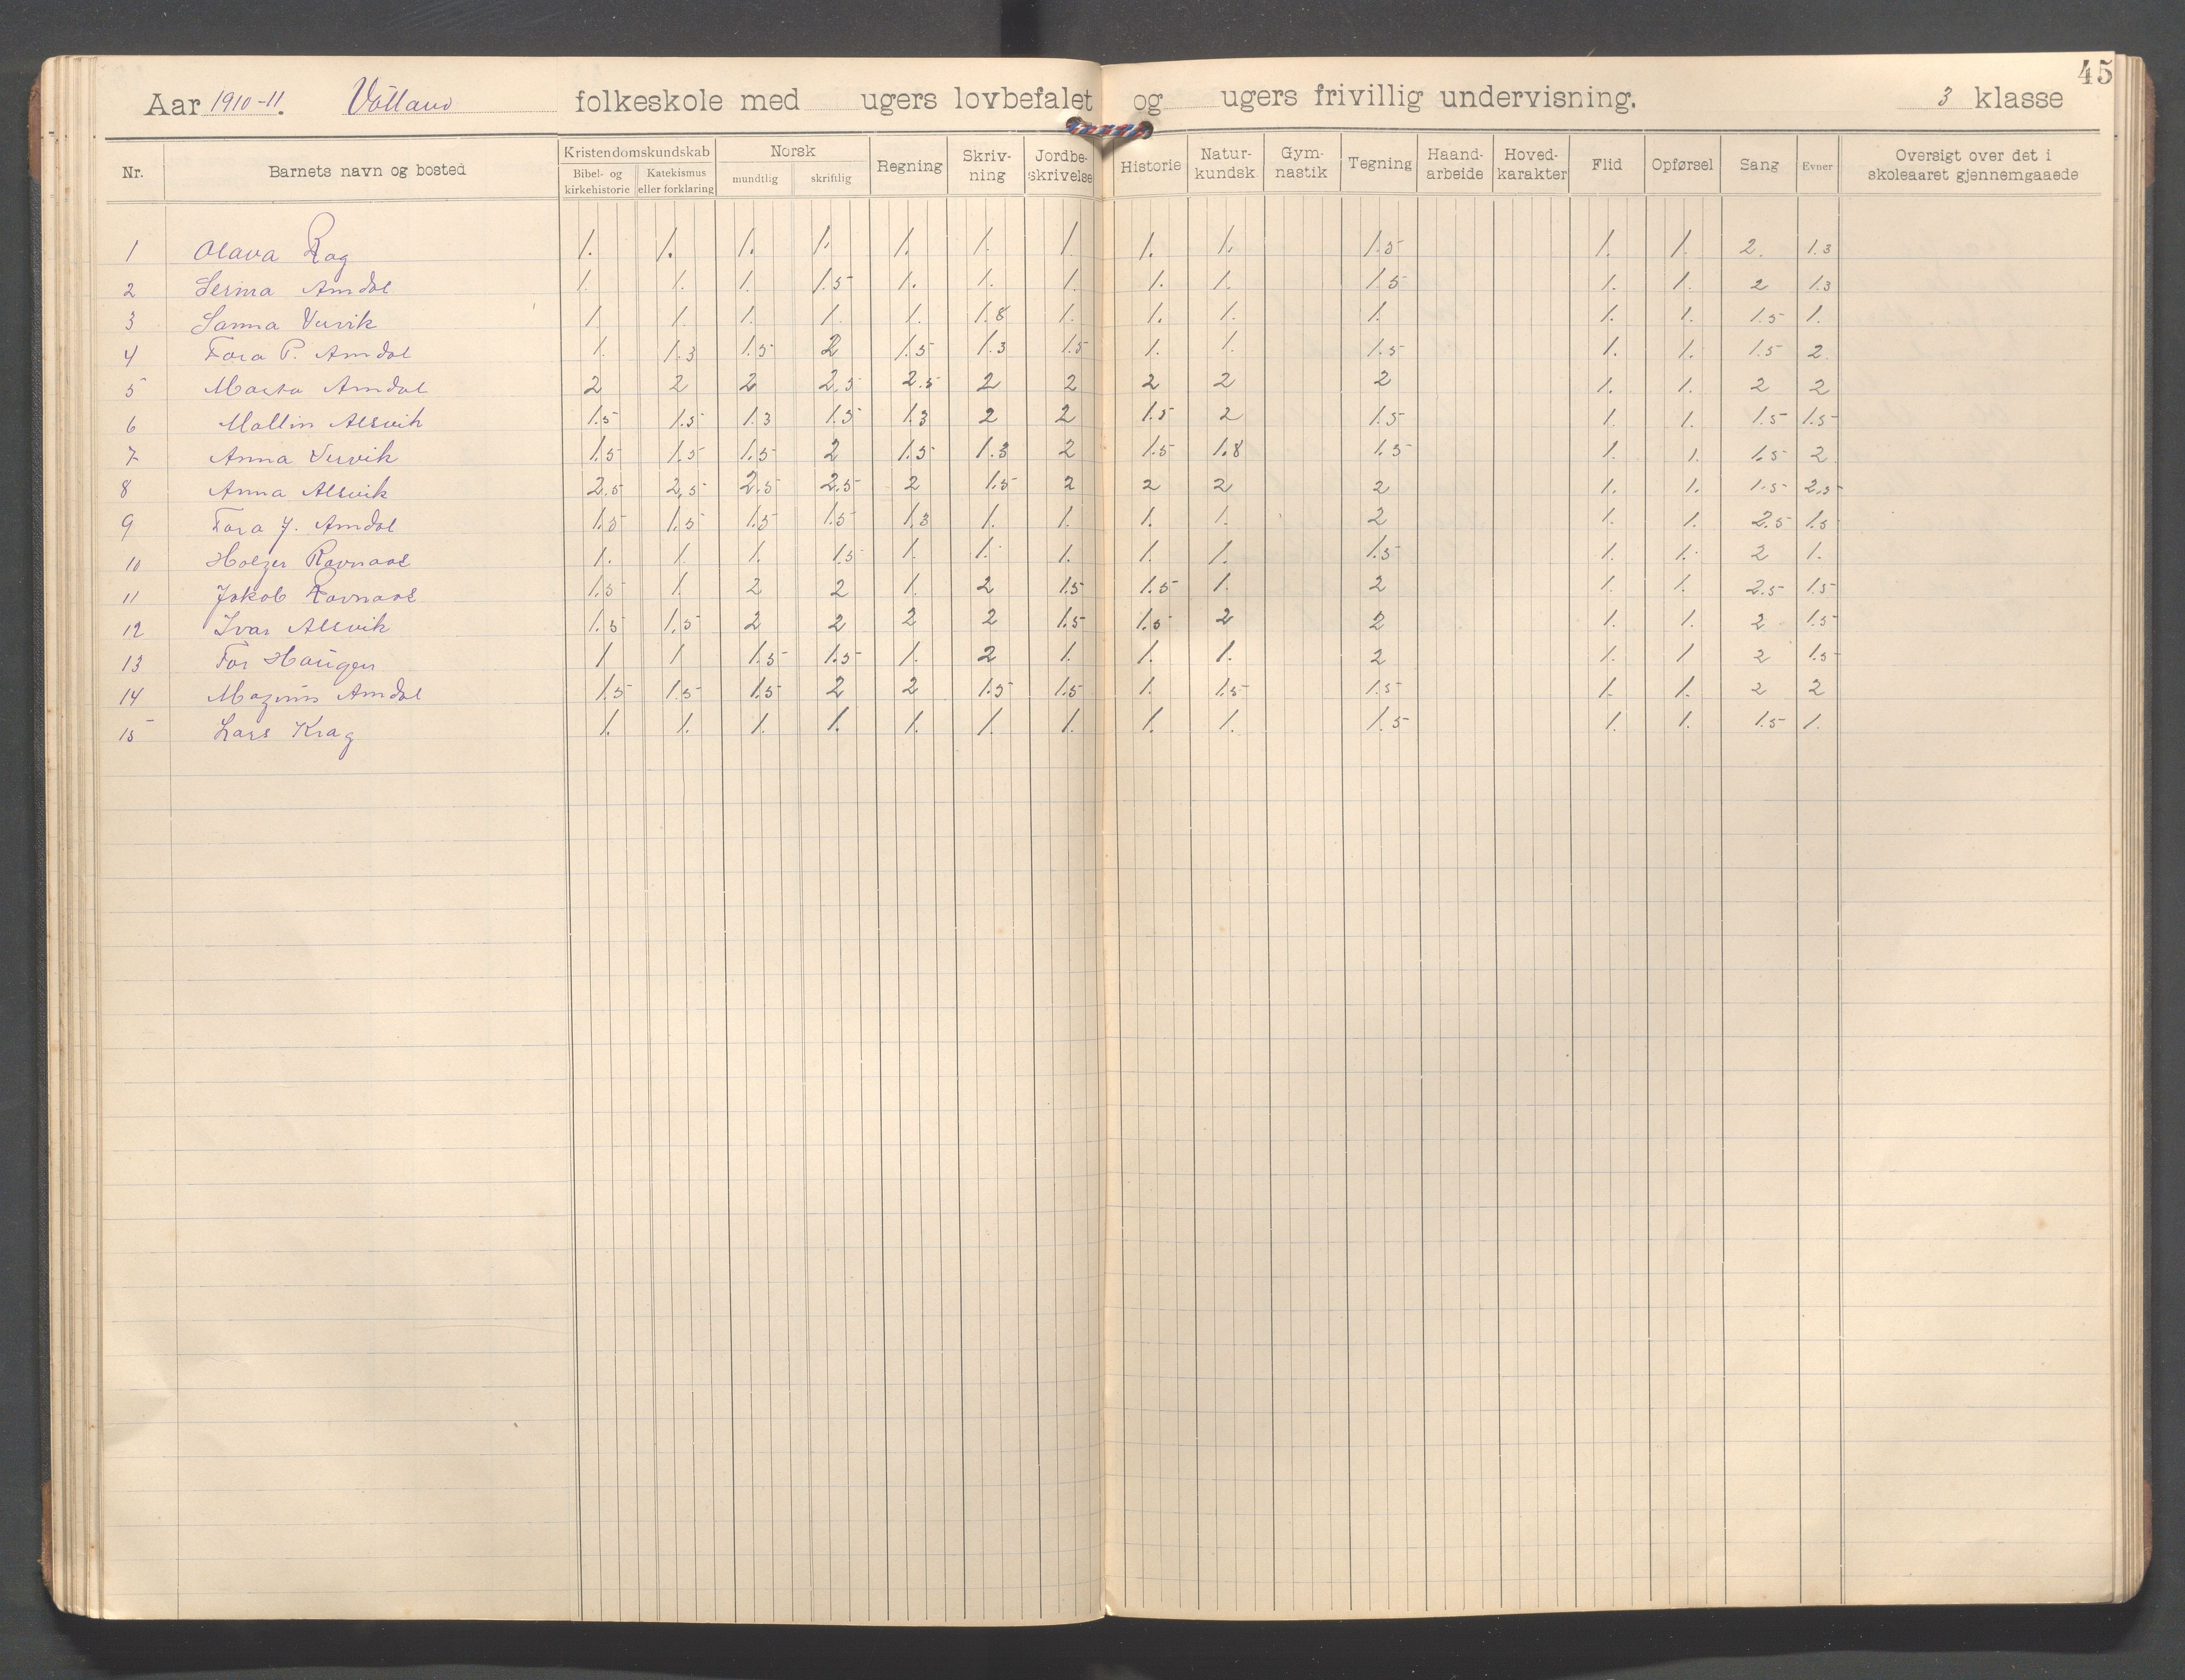 45
Aar 1910-11. Völland folkeskole med ugers lovbefalet og ugers frivillig undervisning. 3 klasse
Nr. Barnets navn og bosted Kristendomskundskab Bibel- og kirkehistorie Katekismus eller forklaring Norsk mundtlig skriftlig Regning Skriv-ning Jordbe-skrivelse Historie Natur-kundsk. Gym-nastik Tegning Haand-arbeide Hoved-karakter Flid Opførsel Sang Evner Oversigt over det i skoleaaret gjennemgaaede
1 Olava Rag 1. 1. 1. 1. 1. 1. 1. 1. 1. 1.5 1. 1. 2. 1.3
2 Serina Amdal 1. 1. 1. 1.5 1. 1. 1. 1. 1. 1.5 1. 1. 2 1.3
3 Sanna Vervik 1. 1. 1. 1. 1. 1.8 1. 1. 1. 1. 1. 1. 1.5 1.
4 Tora P. Amdal 1. 1.3 1.5 2 1.5 1.3 1.5 1. 1. 1.5 1. 1. 1.5 2.
5 Marta Amdal 2 2 2 2.5 2.5 2 2 2 2 2 1. 1. 2 2
6 Mallin Alsvik 1.5 1.5 1.3 1.5 1.3 2 2 1.5 2 1.5 1. 1. 1.5 1.5
7 Anna Vervik 1.5 1.5 1.5 2 1.5 1.3 2 1.5 1.8 1.5 1. 1. 1.5 2
8 Anna Alsvik 2.5 2.5 2.5 2.5 2 1.5 2 2 2 2 1. 1. 1.5 2.5
9 Tora J. Amdal 1.5 1.5 1.5 1.5 1.3 1. 1. 1. 1. 2 1. 1. 2.5 1.5
10 Holger Ravnaas 1. 1. 1. 1.5 1. 1. 1. 1. 1. 1.5 1. 1. 2 1.
11 Jakob Ravnaas 1.5 1. 2 2 1. 2 1.5 1.5 1. 2 1. 1. 2.5 1.5
12 Ivar Alsvik 1.5 1.5 2 2 2 2 1.5 1.5 2 2 1. 1. 2 1.5
13 Tor Haugen 1 1 1.5 1.5 1. 2 1. 1. 1. 2 1. 1 2 1.5
14 Magnus Amdal 1.5 1.5 1.5 2 2 1.5 1.5 1. 1.5 1.5 1. 1. 2 2
15 Lars Krag 1. 1. 1. 1. 1. 1. 1. 1. 1. 1.5 1. 1. 1.5 1.